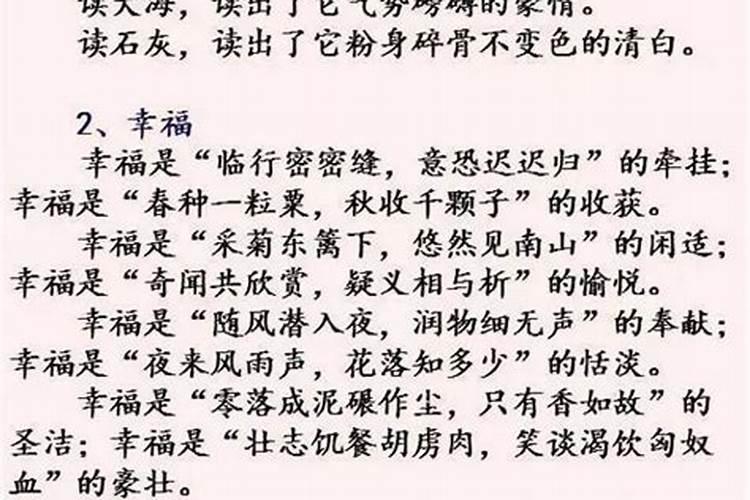 读大海，读出了它气势磅礴的豪情。
读石灰，读出了它粉身碎骨不变色的清白。
2、幸福
幸福是“临行密密缝，意恐迟迟归”的牵挂；
幸福是“春种一粒粟，秋收千颗子”的收获。
幸福是“采菊东篱下，悠然见南山”的闲适；
幸福是“奇闻共欣赏，疑义相与析”的愉悦。
幸福是“随风潜入夜，润物细无声”的奉献；
幸福是“夜来风雨声，花落知多少”的恬淡。
幸福是“零落成泥碾作尘，只有香如故”的
圣洁；幸福是“壮志饥餐胡虏肉，笑谈渴饮匈奴
血”的豪壮。